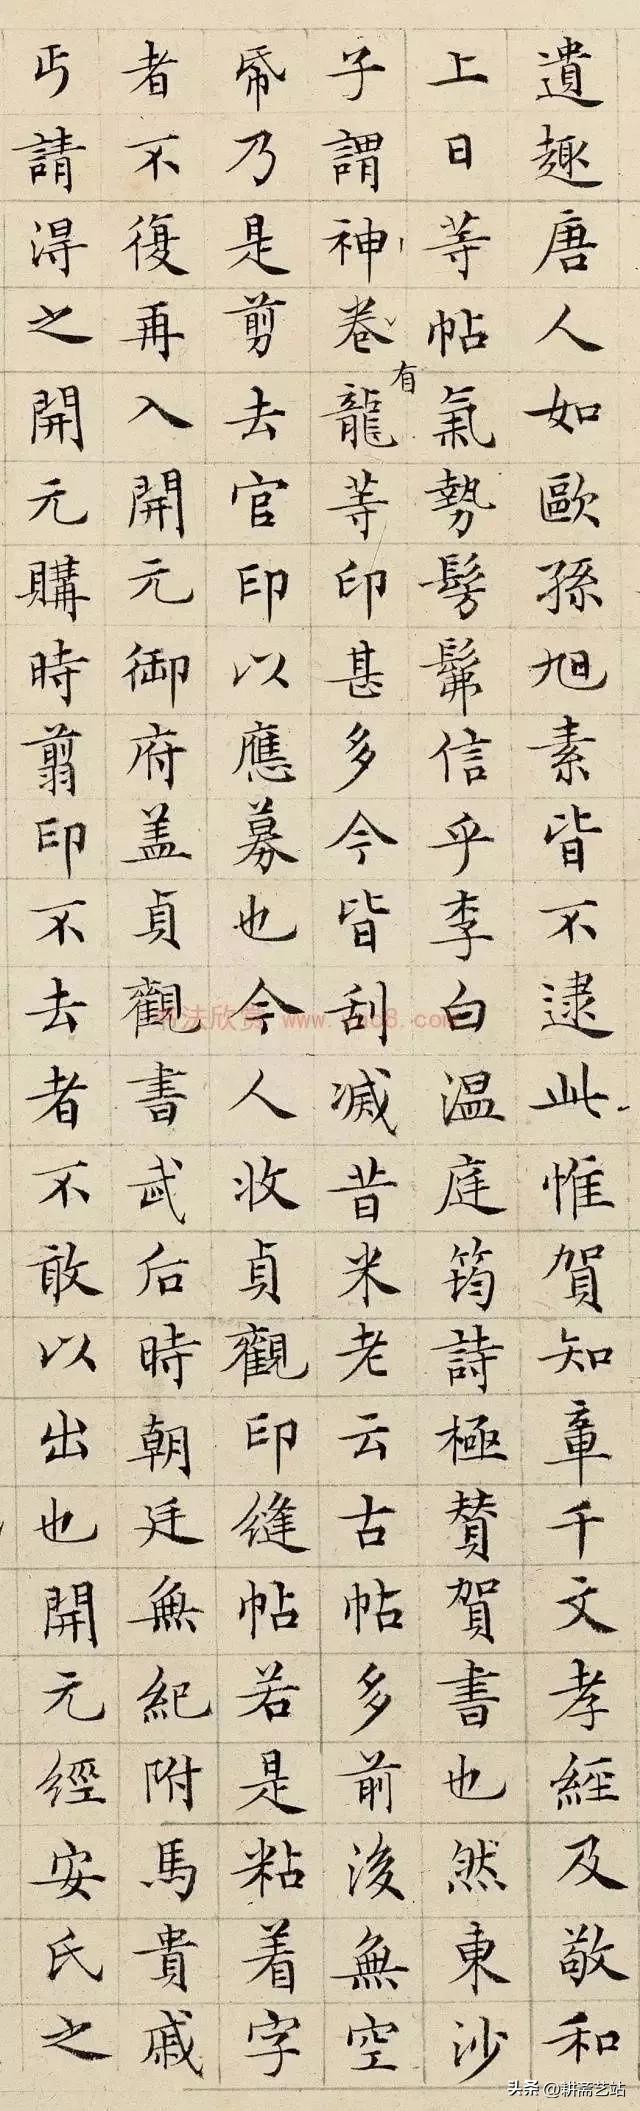 遺趣唐人如歐孫旭素皆不逮此惟賀知章千文孝經及敬和
上日等帖氣勢髣髴信乎李白温庭筠詩極賛賀書也然東沙
子謂神卷有龍等印甚多今皆刮滅昔米老云古帖多前後無空
帋乃是剪去官印以應募也今人收貞觀印縫帖若是粘着字
者不復再入開元御府盖貞觀書武后時朝廷無紀附馬貴戚
丐請得之開元購時翦印不去者不敢以出也開元經安氏之
法欣赏
头条 @耕斋艺站